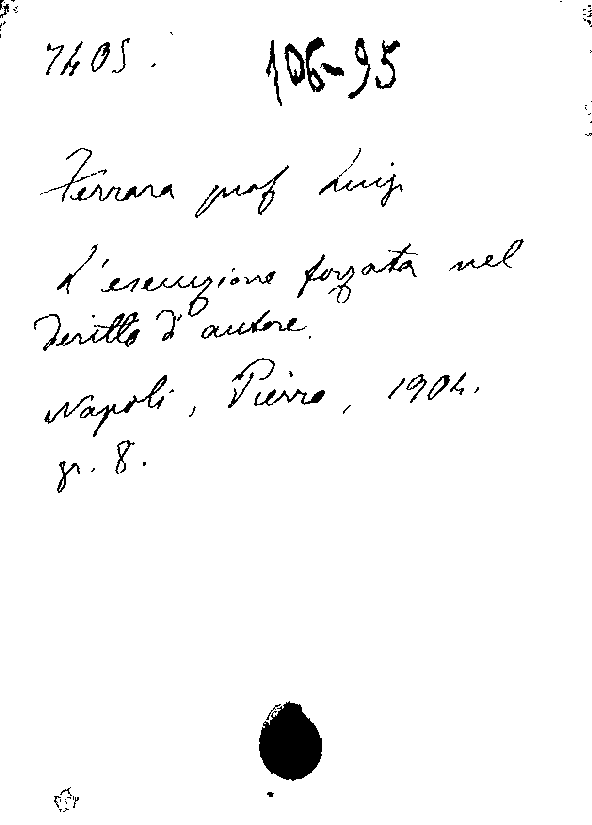 7405. 106-95
Ferrara prof Luigi
L'esecuzione forzata nel
diritto d'autore.
Napoli, Pierro, 1904.
gr. 8.